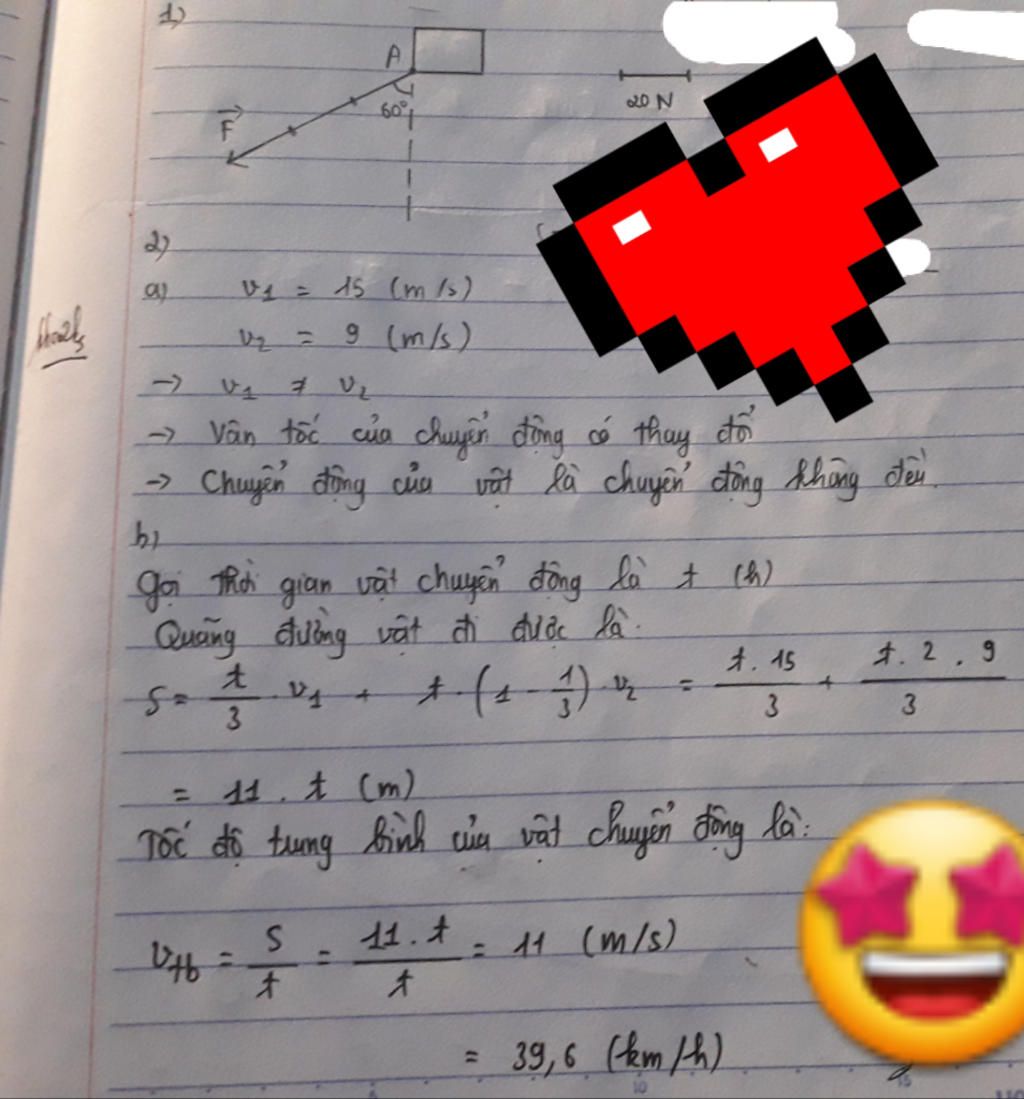 1)
A
60°
F
20 N
2)
a) v1 = 15 (m/s)
v2 = 9 (m/s)
→ v1 ≠ v2
→ Vân tốc của chuyển động có thay đổ
→ Chuyển động của vật là chuyển động không đều.
b)
Gọi thời gian vật chuyển động là t (h)
Quãng đường vật đi được là:
S = t/3 . v1 + t . (1 - 1/3) . v2 = t . 15/3 + t . 2 . 9/3
= 11 . t (m)
Tốc độ trung bình của vật chuyển động là:
vtb = S/t = 11 . t/t = 11 (m/s)
= 39,6 (km/h)
10
15